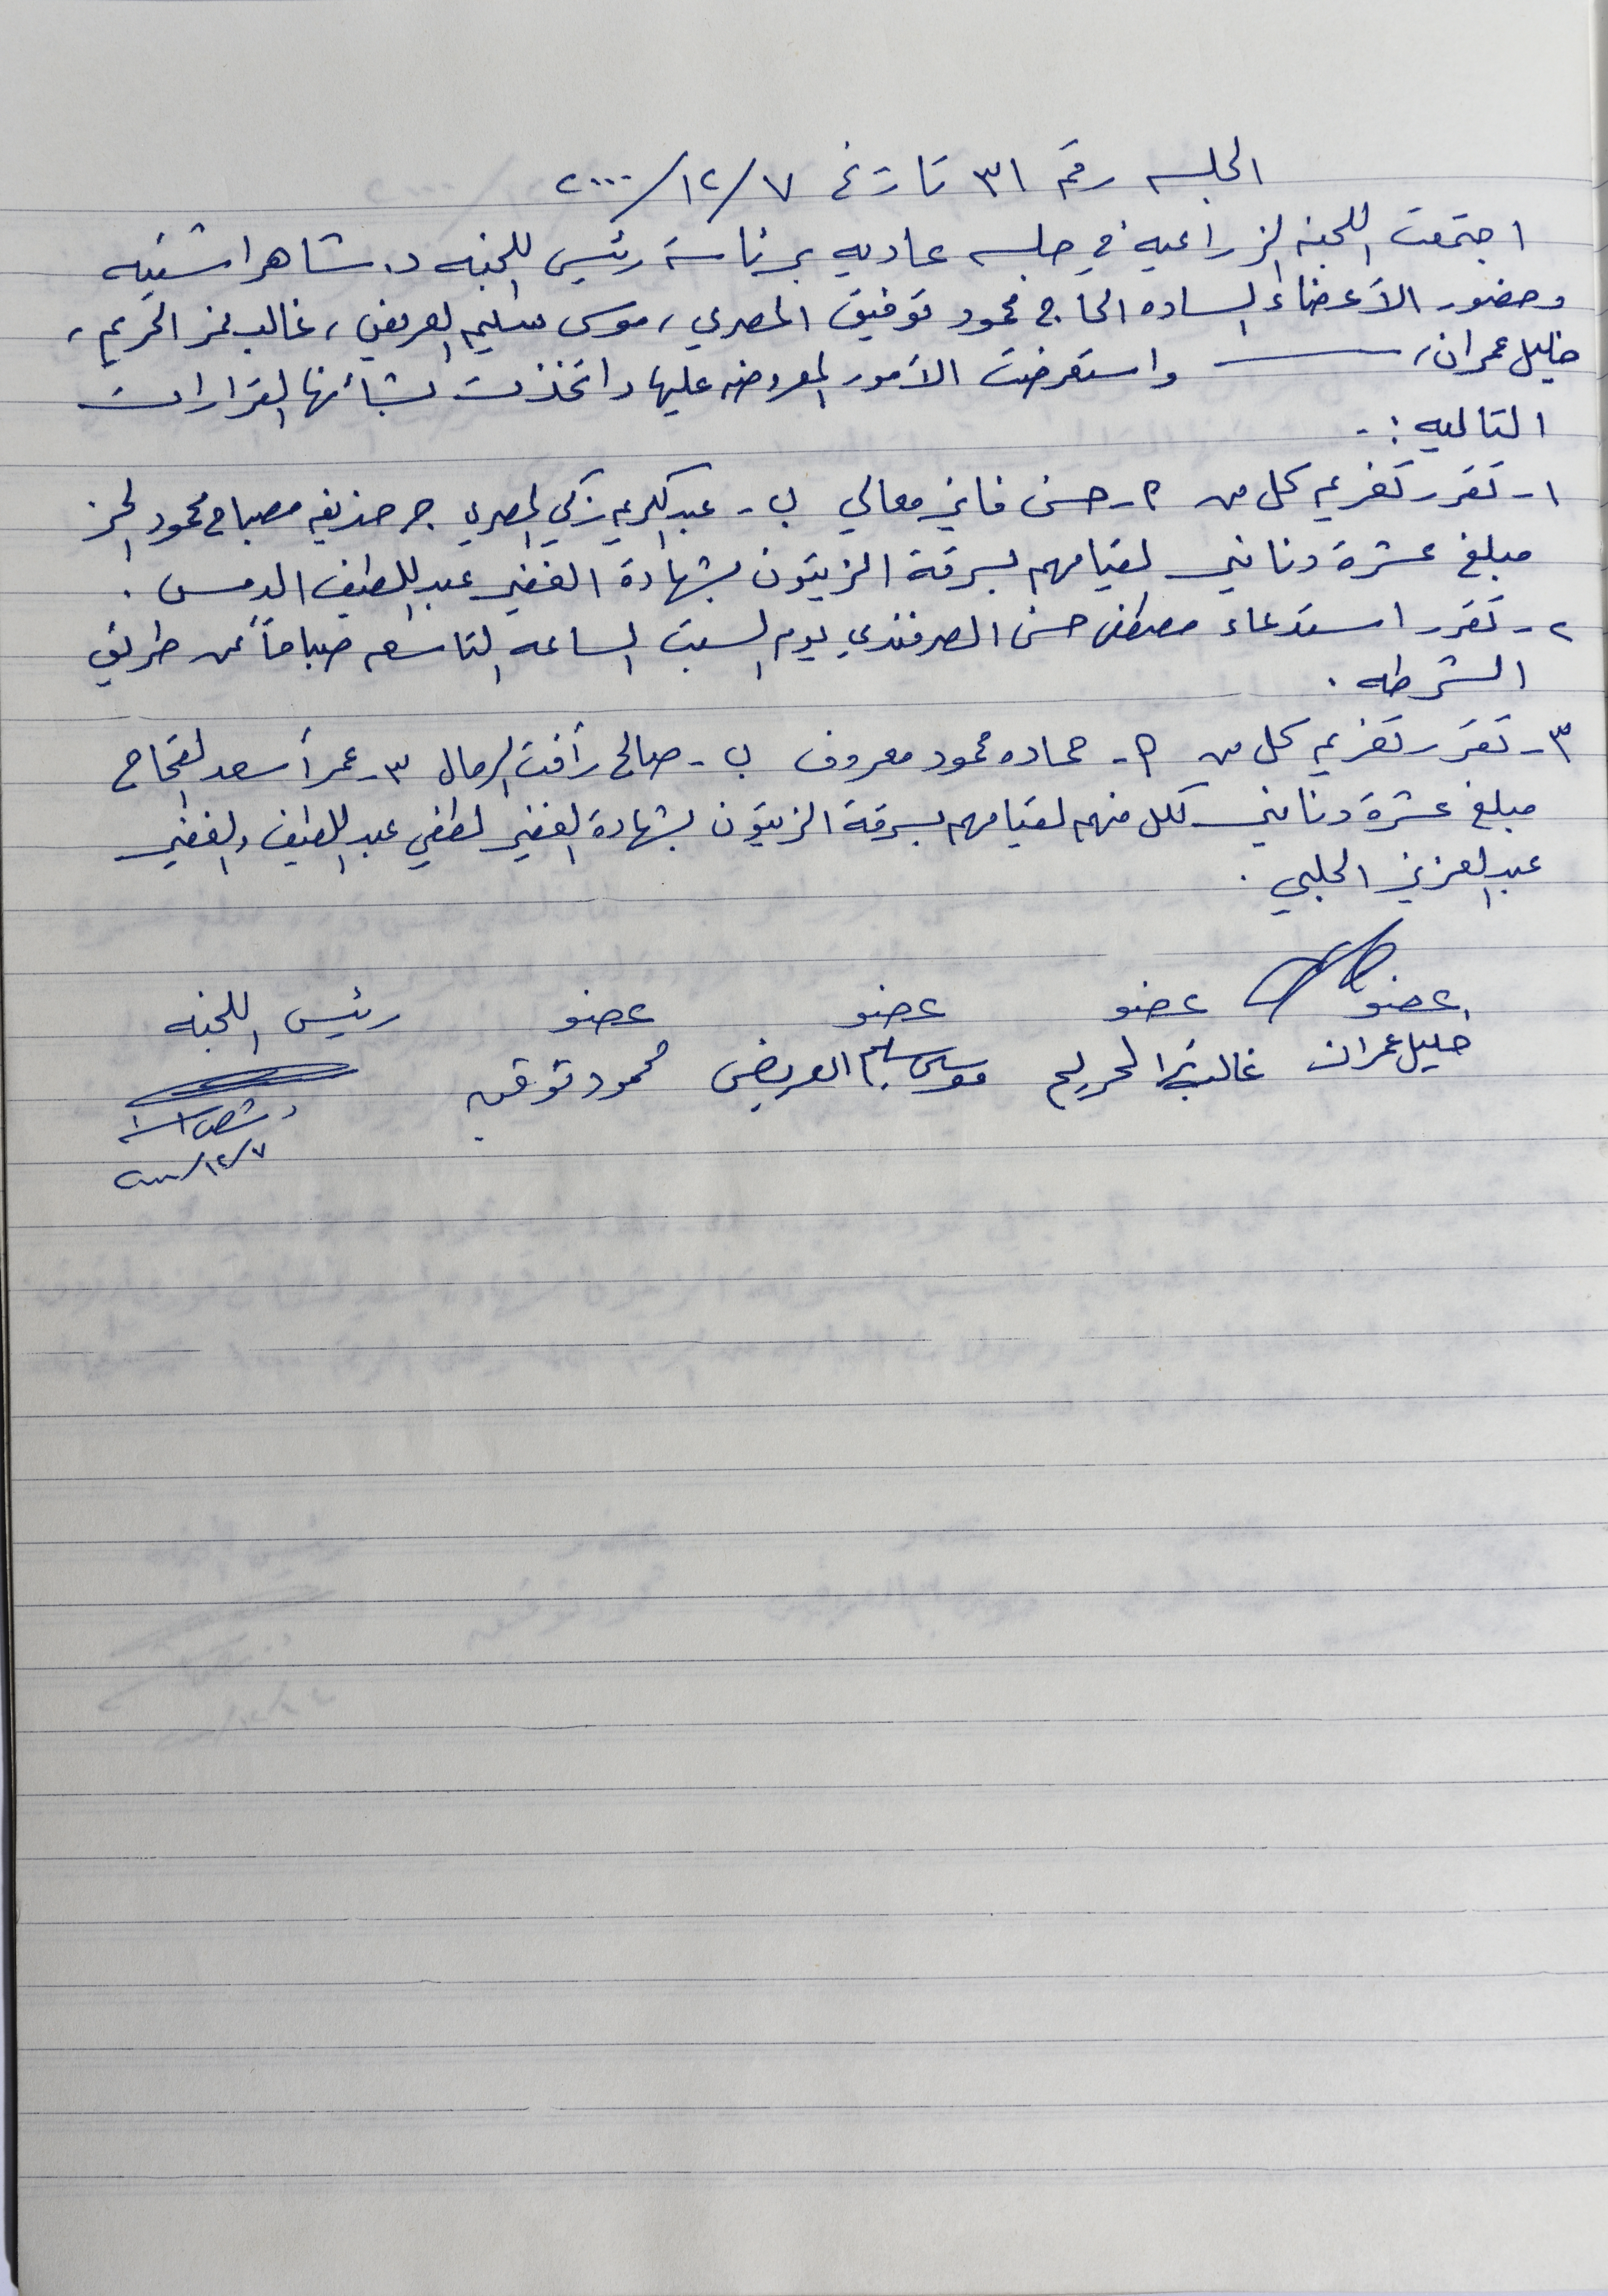 الجلسه رقم ٣١ تاريخ ٧/١٢/٢٠٠٠
اجتمعت اللجنه الزراعيه في جلسه عاديه برئاسة رئيس اللجنه د. شاهر اشتيه
وحضور الأعضاء الساده الحاج محمود توفيق المصري، موسى سليم العريض، غالب نمر الحريم،
خليل عمران، واستعرضت الأمور المعروضه عليها واتخذت بشأنها القرارات
التاليه :-
١- تقرر تغريم كل من أ- حسن فايز معالي ب- عبد الكريم زكي المصري ج حذيفه مصباح محمود الخرز
مبلغ عشرة دنانير لقيامهم بسرقة الزيتون بشهادة الغفير عبد اللطيف الدمس .
٢- تقرر استدعاء مصطفى حسن الصرفندي يوم السبت الساعه التاسعه صباحاً عن طريق
الشرطه .
٣- تقرر تغريم كل من أ- حماده محمود معروف ب- صالح رأفت الرمال ٣- عمر أسعد القحاح
مبلغ عشرة دنانير لكل منهم لقيامهم بسرقة الزيتون بشهادة الغفير لطفي عبد اللطيف والغفير
عبد العزيز الحلبي .
عضو عضو عضو عضو رئيس اللجنه
خليل عمران غالب نمر الحريم موسى سليم العريض محمود توفيق
٧/١٢/٢٠٠٠